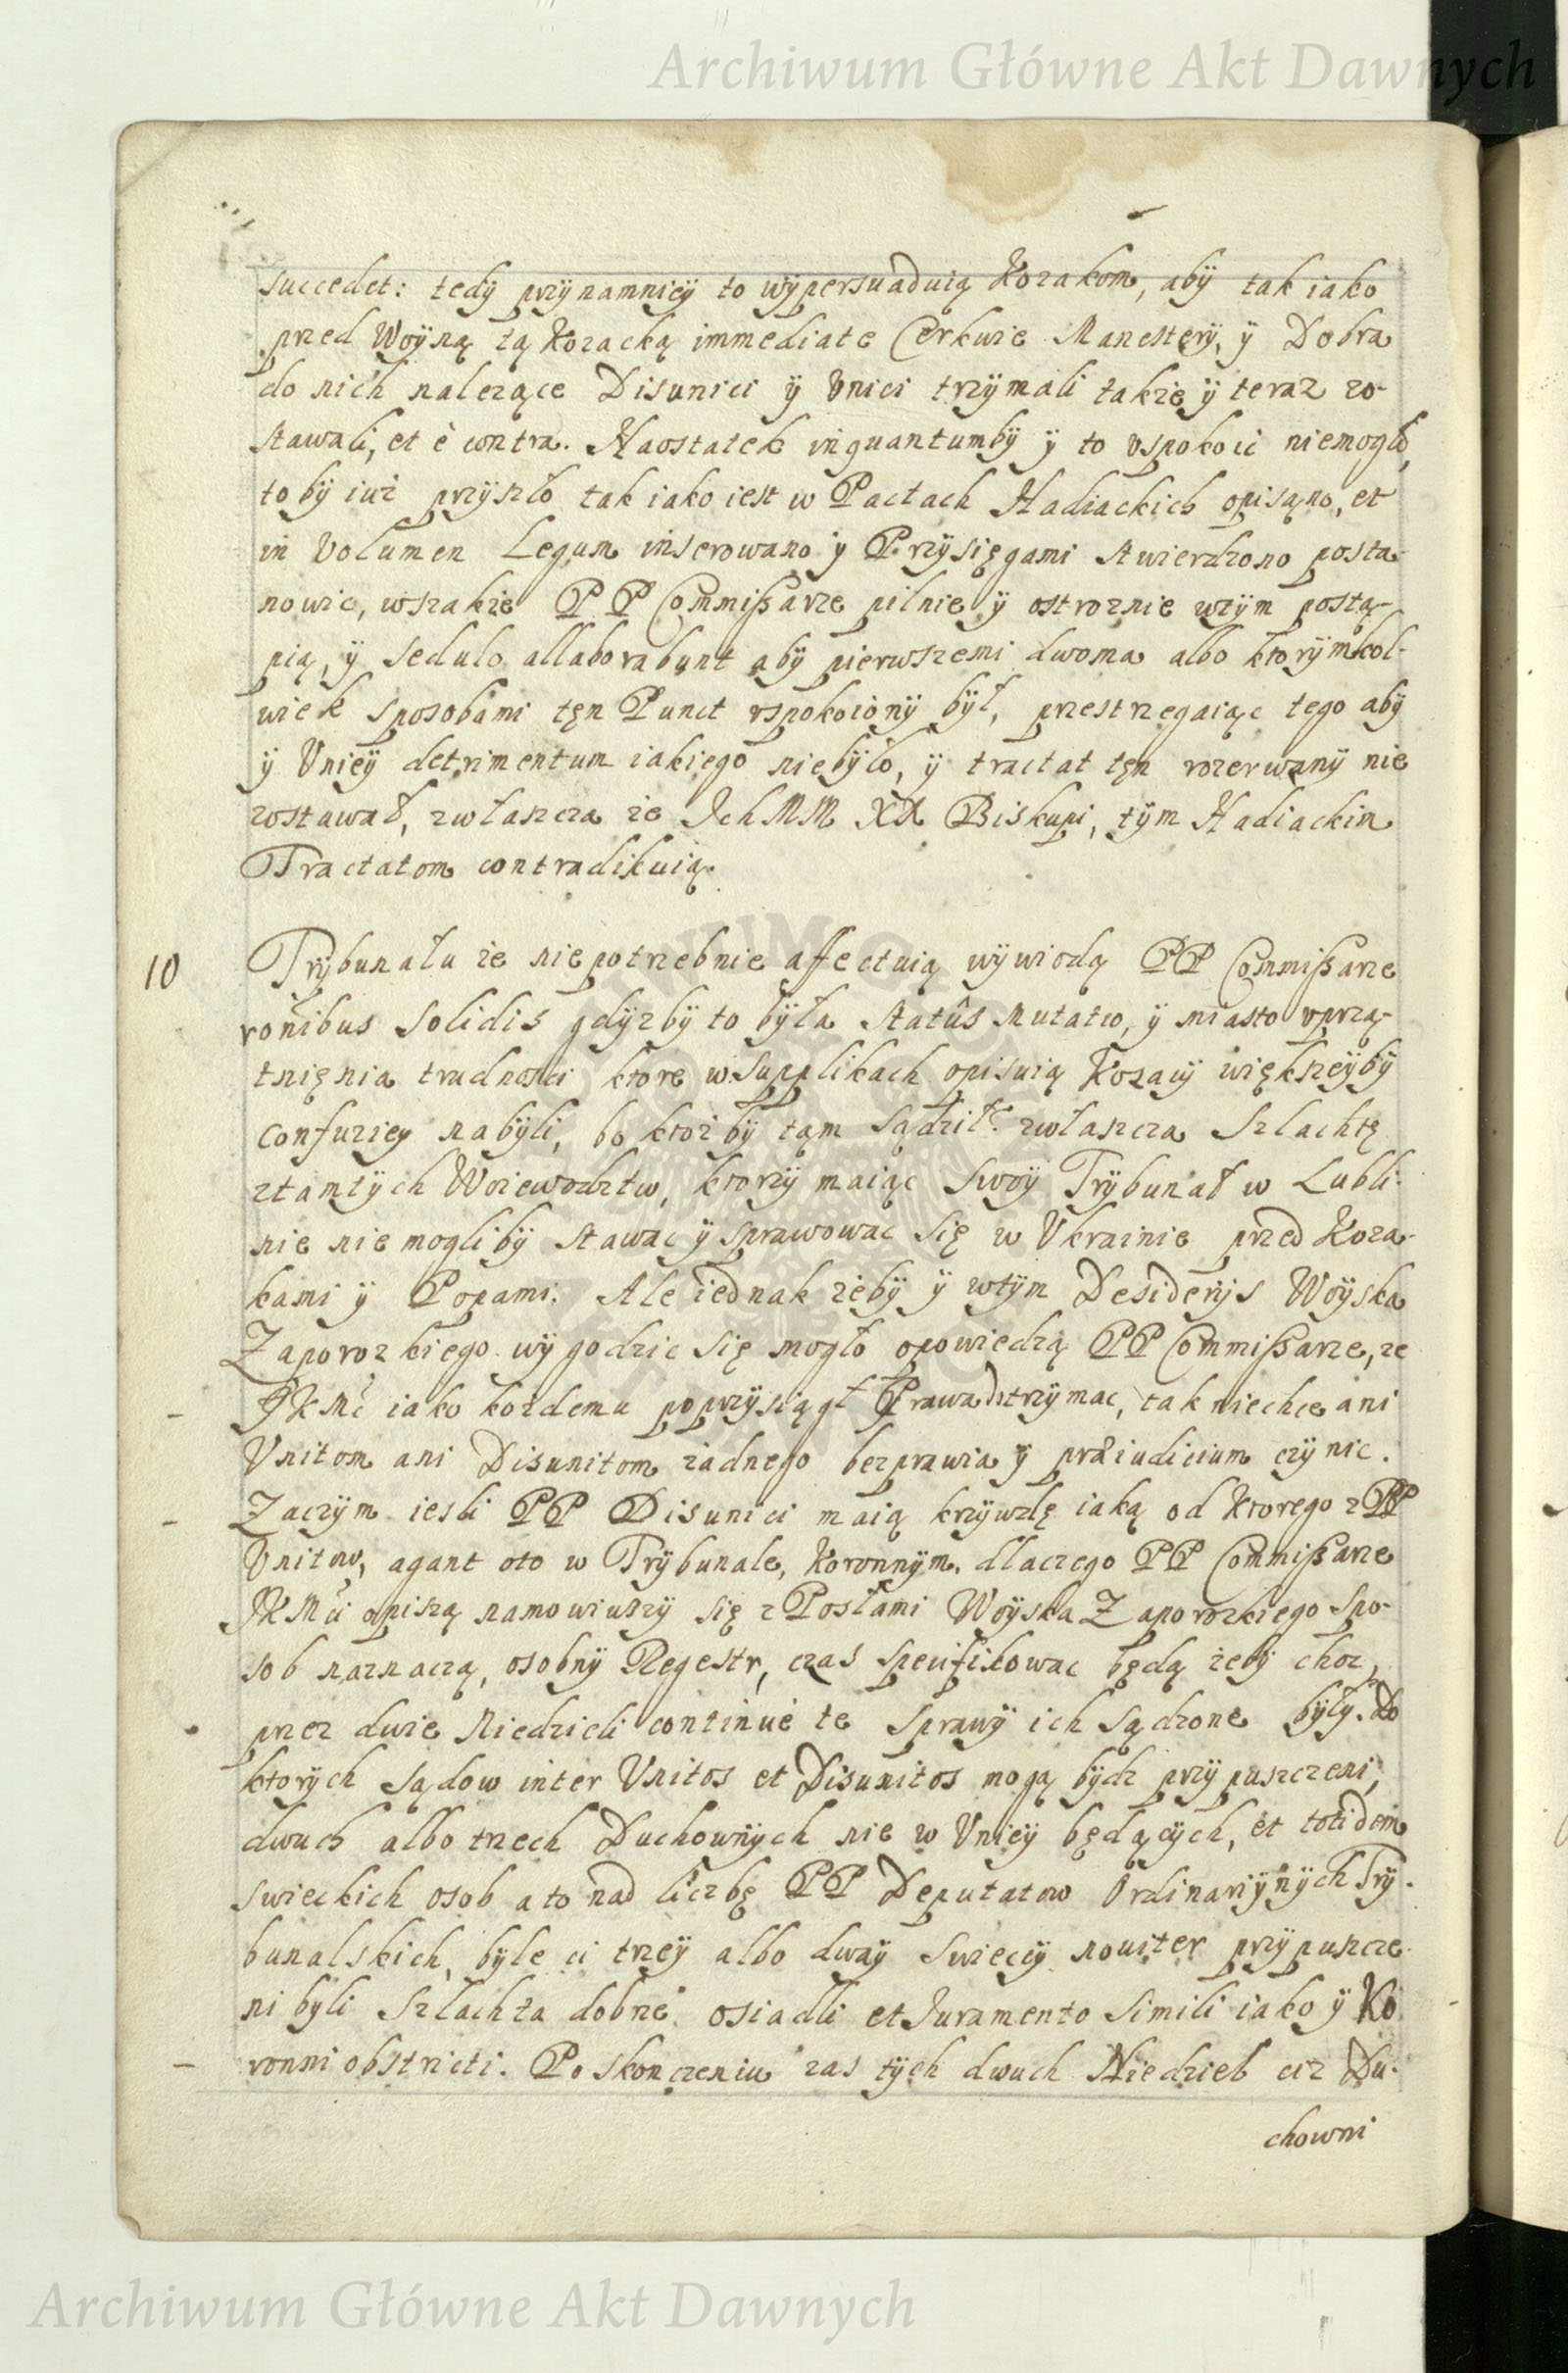 Archiwum Główne Akt Dawnych
succedet: tedÿ przÿnamnieÿ to wÿpersuaduią Kozakom, abÿ tak iako
przed Woÿną tą Kozacką immediate Cerkwie Manesterÿ, ÿ Dobra
do nich nalezące Disunici ÿ Vnici trzÿmali takze ÿ teraz zo-
stawali, et è contra. Naostatek inquantumbÿ ÿ to vspokoić niemogło,
to bÿ iuż przÿszło tak iako iest w Pactach Hadiackich opisąno, et
in Volumen Legum inserowano ÿ Przÿsięgami stwierdzono posta-
nowic, wszakże PP Commißarze pilnie ÿ ostroznie wtÿm postą-
pią, ÿ sedulo allaborabunt abÿ pierwszemi dwoma albo ktorÿmkol-
wiek sposobami tęn Punct vspokoionÿ bÿł, przestrzegaiąc tego abÿ
ÿ Vnieÿ detrimentum iakiego niebÿło, ÿ tractat tęn rozerwanÿ nie
zostawał, zwłaszcza że Ich MM XX Biskupi, tÿm Hadiackim
Tractatom contradikuią.
10 Trÿbunału że niepotrzebnie affectuią wÿwiodą PP Commißarze
rońibus solidis gdÿzbÿ to bÿła statûs mutatio, ÿ miasto vprzą-
tnięnia trudności ktore w supplikach opisuią Kozacÿ większeÿbÿ
confuziey nabÿli, bo ktożbÿ tąm sądził? zwłaszcza Szlachtę
ztamtÿch Woiewodztw, ktorzÿ maiąc swoÿ Trÿbunał w Lubli-
nie nie moglibÿ stawac ÿ sprawowac się w Vkrainie przed Koza-
kami ÿ Popami. Ale iednak żebÿ ÿ wtÿm Desiderÿs Woÿska
Zaporozkiego wÿgodzic się mogło opowiedzą PP Commißarze, ze
JKMć iako kozdemu poprzÿsiągł Prawa dotrzÿmac, tak niechce ani
Vnitom ani Disunitom żadnego bezprawia ÿ præiudicium czÿnic.
Zaczÿm iesli PP Disunici maią krzÿwdę iaką od ktorego z PP
Vnitow, agant oto w Trÿbunale, Koronnÿm, dlaczego PP Commißarze
JKMći opiszą namowiwszÿ się z Posłami Woÿska Zaporozkiego spo-
sob naznaczą, osobnÿ Regestr, czas specifikowac będą żebÿ choc,
przez dwie Niedzieli continuè te sprawÿ ich sądzone bÿłÿ. Do
ktorÿch sądow inter Vnitos et Disunitos mogą bÿdz przÿpuszczeni,
dwuch albo trzech Duchownÿch nie w Vnieÿ będącÿch, et totidem
swieckich osob a to nad liczbę PP Deputatow Ordinariÿnÿch Trÿ-
bunalskich, bÿle ci trzeÿ albo dwaÿ swieccÿ nouiter przÿpuszcze-
ni bÿli Szlachta dobrze osiadli et Juramento simili iako ÿ Ko
ronni obstricti. Po skonczeniu zas tÿch dwuch Niedziel ciz Du-
chowni
Archiwum Główne Akt Dawnych